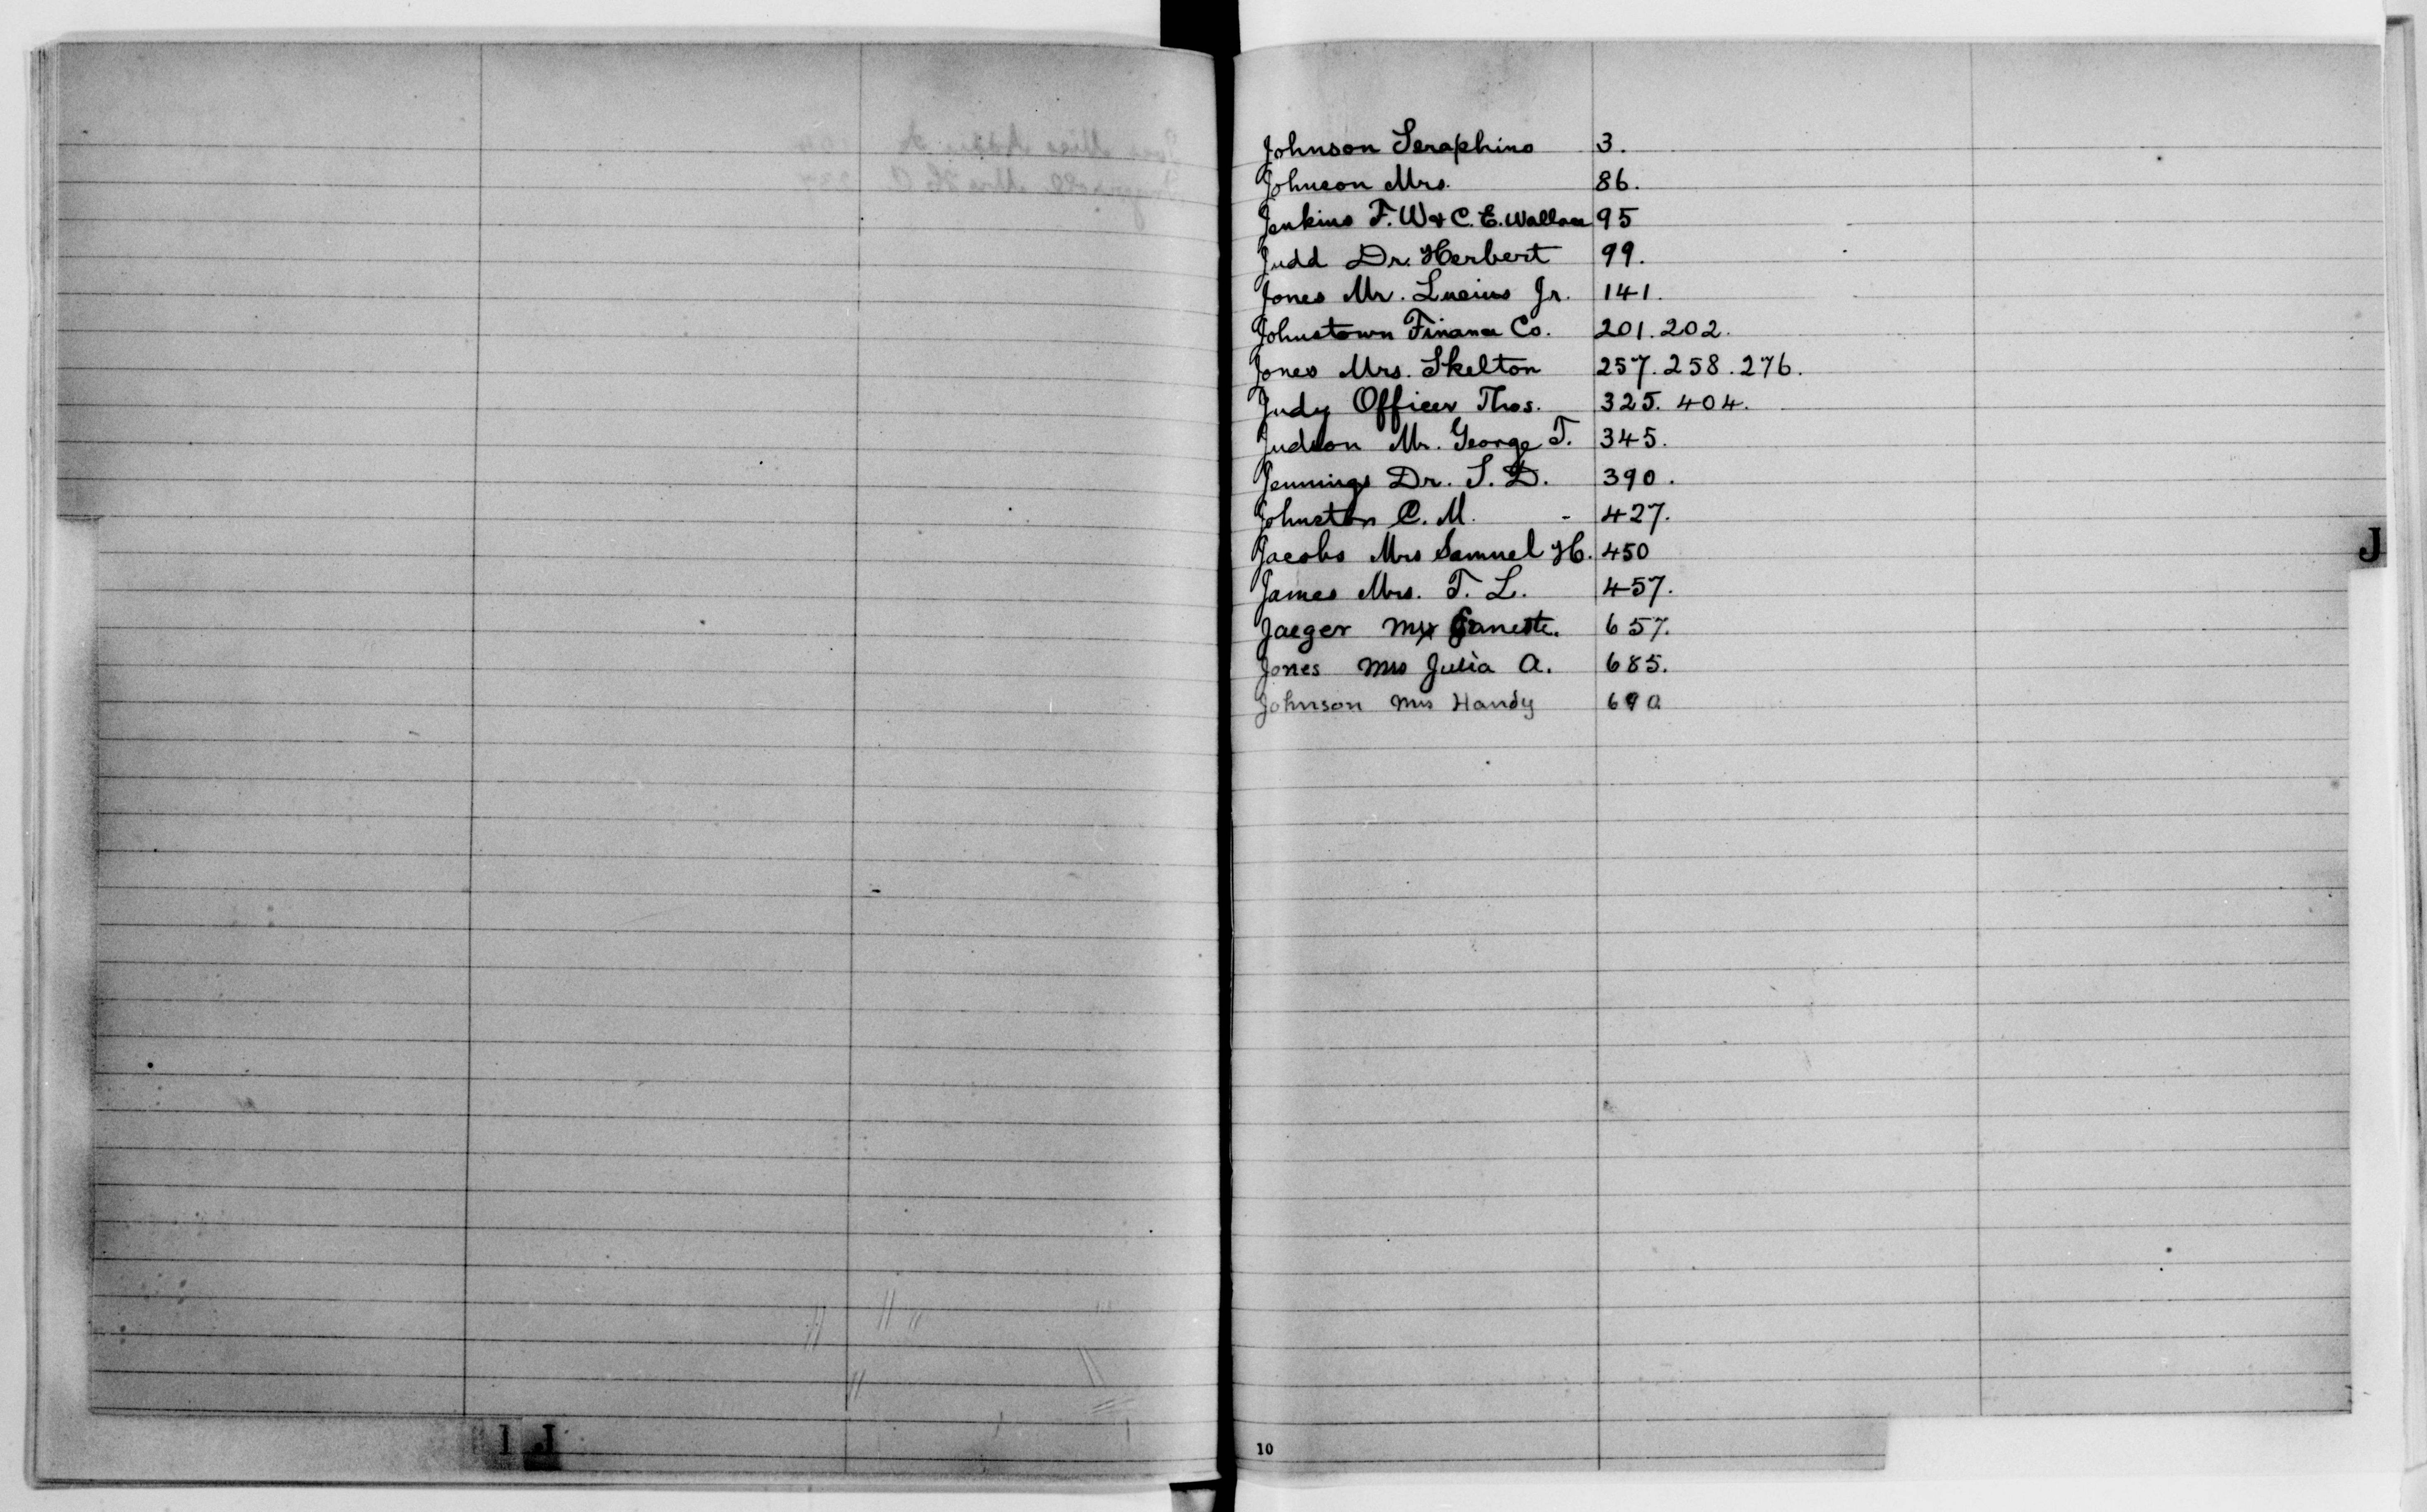 Johnson Seraphino 3.
Johnson Mrs. 86.
Jenkins F. W & C. E. Wallace 95
Judd Dr. Herbert 99.
Jones Mr. Lucius Jr. 141.
Johnstown Finance Co. 201. 202.
Jones Mrs. Skelton 257. 258. 276.
Judy Officer Thos. 325. 404.
Judson Mr. George T. 345.
Jennings Dr. S. D. 390.
Johnston C. M. - 427.
Jacobs Mrs Samuel H. 450
James Mrs. T. L. 457.
Jaeger 657.
Jones Mrs Julia A. 685.
Johnson Mrs Handy 690
J
I J
10